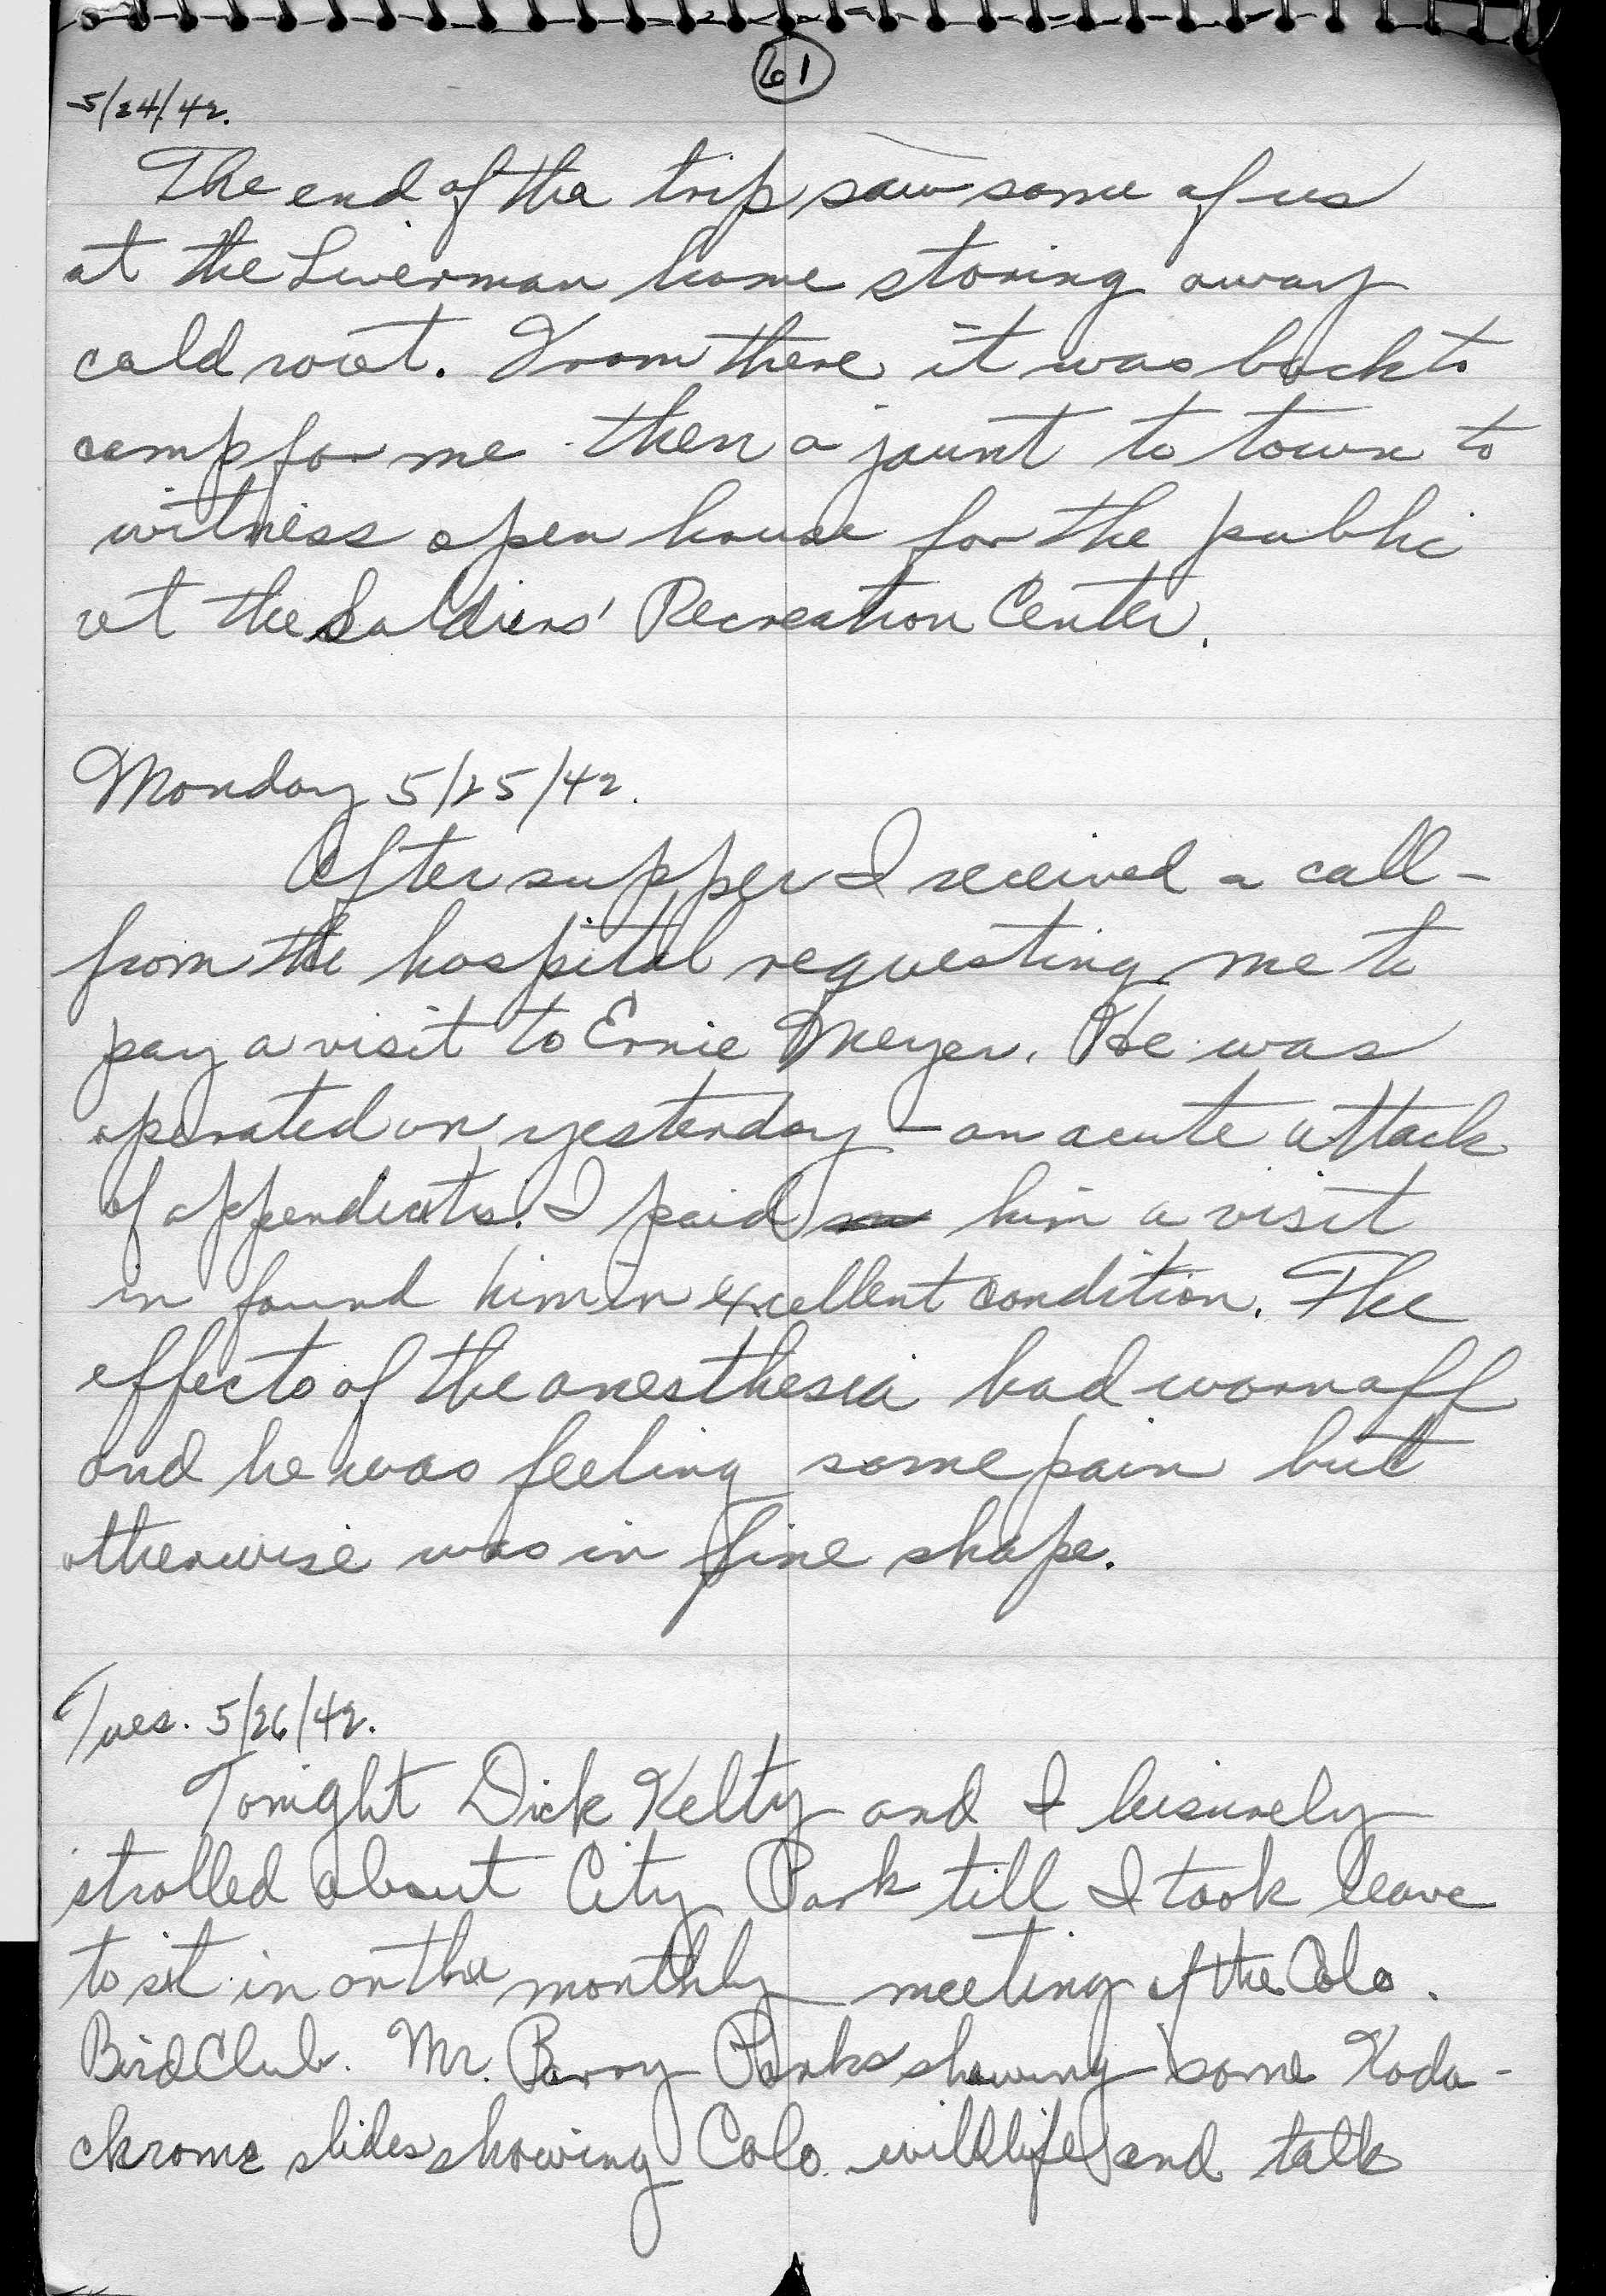 61
5/24/42.
The end of the trip saw some of us
at the Liverman home storing away
cold root. From there it was back to
camp for me - then a jaunt to town to
witness open house for the public
at the Soldiers' Recreation Center.
Monday 5/25/42.
After supper I received a call -
from the hospital requesting me to
pay a visit to Ernie Meyer. He was
operated on yesterday - an acute attack
of appendicitis. I paid him a visit
in found him in excellent condition. The
effects of the anesthesia had worn off
and he was feeling some pain but
otherwise was in fine shape.
Tues. 5/26/42.
Tonight Dick Kelty and I leisurely
strolled about City Park till I took leave
to sit in on the monthly meeting of the Colo.
Bird Club. Mr. Barry Parks showing some Koda-
chrome slides showing Colo. wildlife and talk